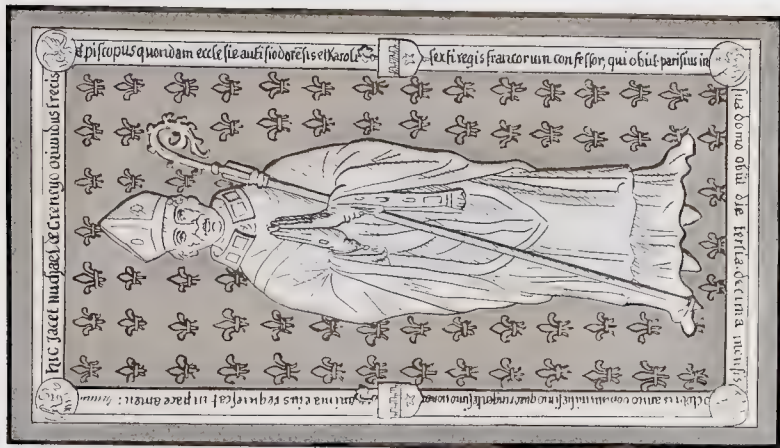 hic jacet michael de Crenoyo oriundus trecis
episcopus quondam ecclesie autisiodorēsis et Karoli
sexti regis francorum confessor, qui obiit parisius in
sua domo obiit die tertia-decima mensis
octobris anno domini millesimo quadringentesimo nono
anima eius requiescat in pace amen: